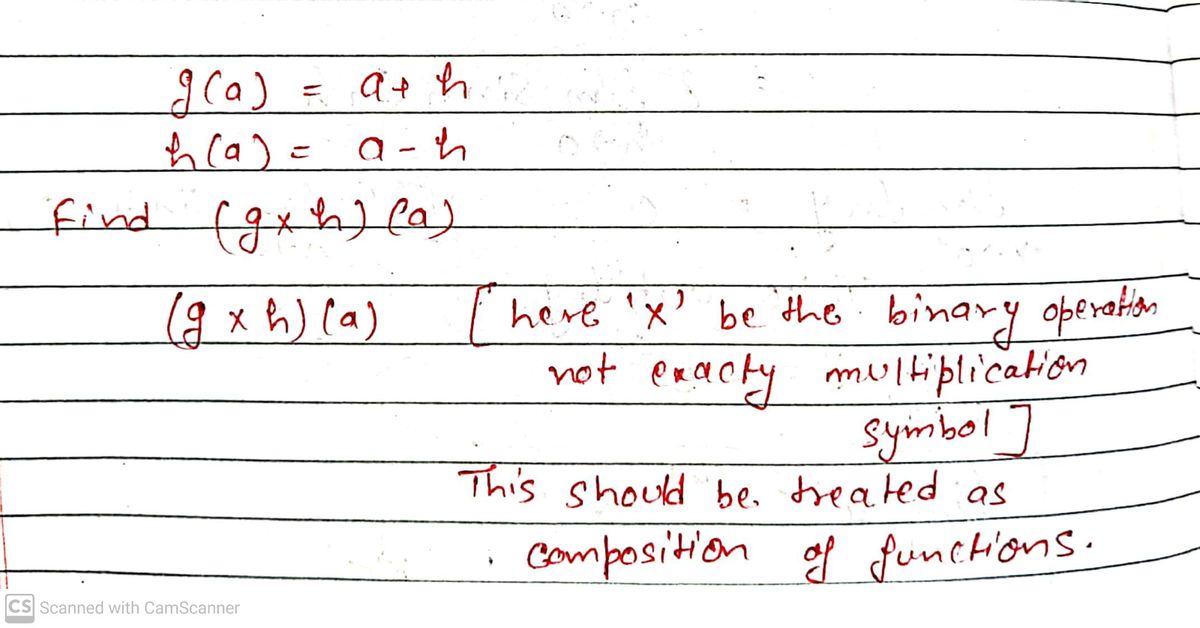 g(a) = a+h
h(a) = a-h
Find (g×h)(a)
(g×h)(a) [here 'x' be the binary operation
not exacty multiplication
symbol]
This should be treated as
composition of functions.
CS Scanned with CamScanner